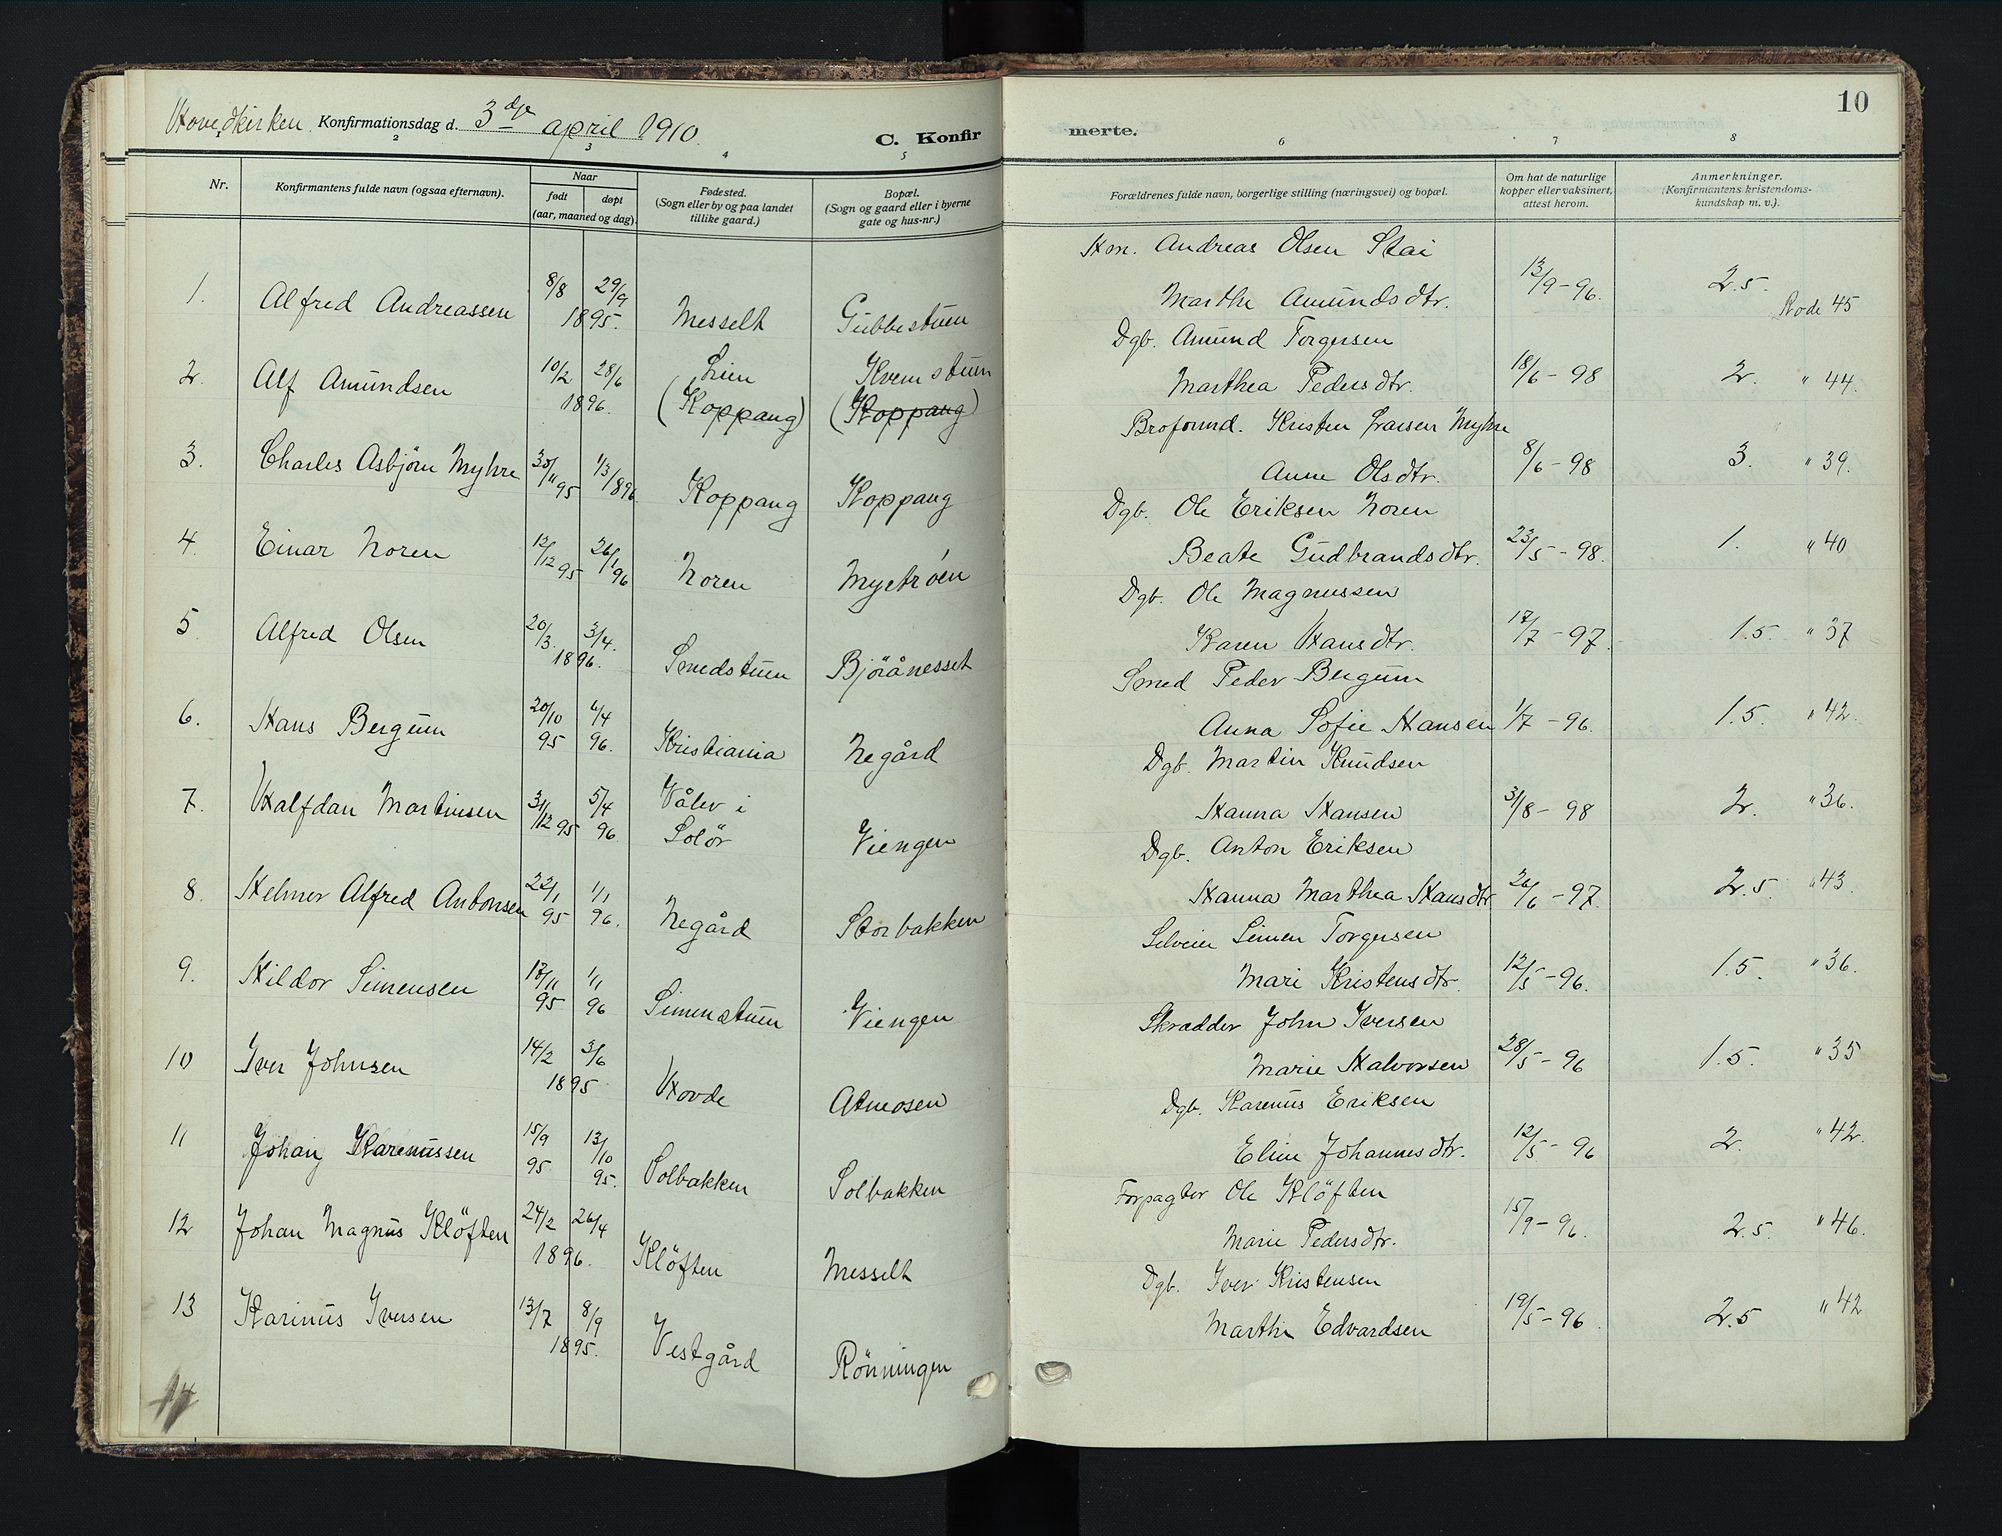 Hovedkirken Konfirmationsdag d. 3dje april 1910. C. Konfirmerte. 10
1 2 3 4 5 6 7 8
Nr. Konfirmantens fulde navn (ogsaa efternavn). Naar født døpt (aar, maaned og dag). Fødested. (Sogn eller by og paa landet tillike gaard.) Bopæl. (Sogn og gaard eller i byerne gate og hus-nr.) Forældrenes fulde navn, borgerlige stilling (næringsvei) og bopæl. Om hat de naturlige kopper eller vaksinert, attest herom. Anmerkninger. (Konfirmantens kristendomskundskap m. v.).
Hm. Andreas Olsen Stai
1. Alfred Andreassen 8/8 29/9 1895. Messelt Gubbestuen Marthe Amundsdtr. 13/9-96. 2.5. Rode 45
Dgb. Amund Torgersen
2. Alf Amundsen 10/2 28/6 1896. Lien (Koppang) Kvernstuen (Koppang) Marthea Pedersdtr. 18/6-98 2. " 44.
Broformd. Kristen Larsen Myhre
3. Charles Asbjørn Myhre 30/11 95 1/3 1896. Koppang Koppang Anne Olsdtr. 8/6-98 3. " 39.
Dgb. Ole Eriksen Noren
4. Einar Noren 12/12 95 26/1 96 Noren Myetröen Beate Gudbrandsdtr. 23/5-98. 1. " 40
Dgb. Ole Magnussen
5. Alfred Olsen 20/3. 3/4. 1896. Smedstuen Björånesset Karen Hansdtr. 17/7-97. 1.5. " 37
Smed Peder Bergum
6. Hans Bergum 20/10 95 6/4 96. Kristiania Negård Anna Sofie Hansen 1/7-96. 1.5. " 42.
Dgb. Martin Knudsen
7. Halfdan Martinsen 31/12 95 5/4 96 Våler i Solör Viengen Hanna Hansen 31/8-98 2. " 36.
Dgb. Anton Eriksen
8. Helmer Alfred Antonsen 22/1 95 1/1 96. Negård Storbakken Hanna Marthea Hansdtr 26/6-97. 2.5 " 43.
Selveier Simen Torgersen
9. Hildor Simensen 13/11 95 1/1 96 Simenstuen Viengen Mari Kristensdtr. 12/5-96. 1.5. " 36.
Skrædder John Iversen
10 Iver Johnsen 14/2 3/6 1895. Hovde Atmosen Marie Halvorsen 28/5-96 1.5. " 35
Dgb. Karenus Eriksen
11 Johan Karenussen 15/9 95. 13/10 95. Solbakken Solbakken Eline Johannesdtr. 12/5-96 2. " 42.
Forpagter Ole Klöften
12 Johan Magnus Klöften 24/2 26/4 1896. Klöften Messelt Marie Pedersdtr. 15/9-96. 2.5. " 46.
Dgb. Iver Kristensen
13 Karinus Iversen 13/7 8/9 1895. Vestgård Rönningen Marthe Edvardsen 19/5-96. 2.5 " 42
14